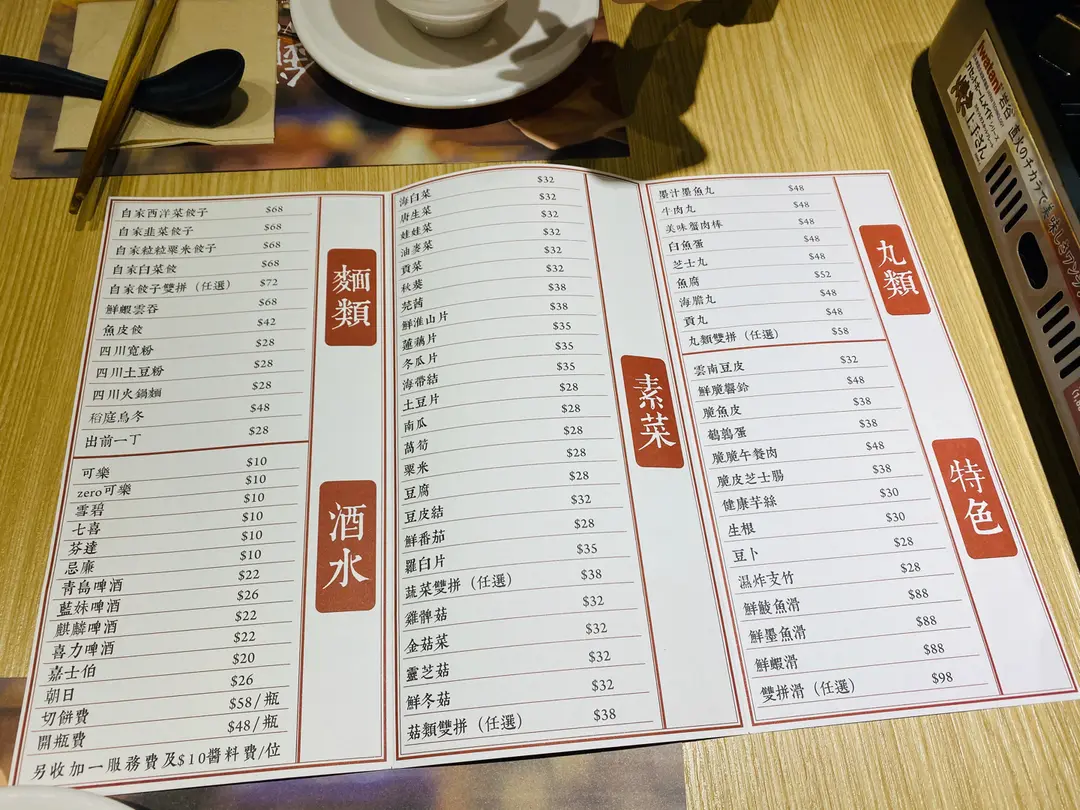 Iwatani 岩谷
直火のチカラで美味しさワンラ
麵類
自家西洋菜餃子 $68
自家韭菜餃子 $68
自家粒粒粟米餃子 $68
自家白菜餃 $68
自家餃子雙拼（任選） $72
鮮蝦雲吞 $68
魚皮餃 $42
四川寬粉 $28
四川土豆粉 $28
四川火鍋麵 $28
稻庭烏冬 $48
出前一丁 $28
酒水
可樂 $10
zero可樂 $10
雪碧 $10
七喜 $10
芬達 $10
忌廉 $10
青島啤酒 $22
藍妹啤酒 $26
麒麟啤酒 $22
喜力啤酒 $22
嘉士伯 $20
朝日 $26
切餅費 $58/瓶
開瓶費 $48/瓶
另收加一服務費及$10醬料費/位
素菜
海白菜 $32
唐生菜 $32
娃娃菜 $32
油麥菜 $32
貢菜 $32
秋葵 $32
芫茜 $38
鮮淮山片 $38
蓮藕片 $35
冬瓜片 $35
海帶結 $35
土豆片 $28
南瓜 $28
萵筍 $28
粟米 $28
豆腐 $28
豆皮結 $32
鮮番茄 $28
羅白片 $35
蔬菜雙拼（任選） $38
雞髀菇 $32
金菇菜 $32
靈芝菇 $32
鮮冬菇 $32
菇類雙拼（任選） $38
丸類
墨汁墨魚丸 $48
牛肉丸 $48
美味蟹肉棒 $48
白魚蛋 $48
芝士丸 $48
魚腐 $52
海膽丸 $48
貢丸 $48
丸類雙拼（任選） $58
特色
雲南豆皮 $32
鮮脆響鈴 $48
脆魚皮 $38
鵪鶉蛋 $38
脆脆午餐肉 $48
脆皮芝士腸 $38
健康芋絲 $30
生根 $30
豆卜 $28
濕炸支竹 $28
鮮鯪魚滑 $88
鮮墨魚滑 $88
鮮蝦滑 $88
雙拼滑（任選） $98